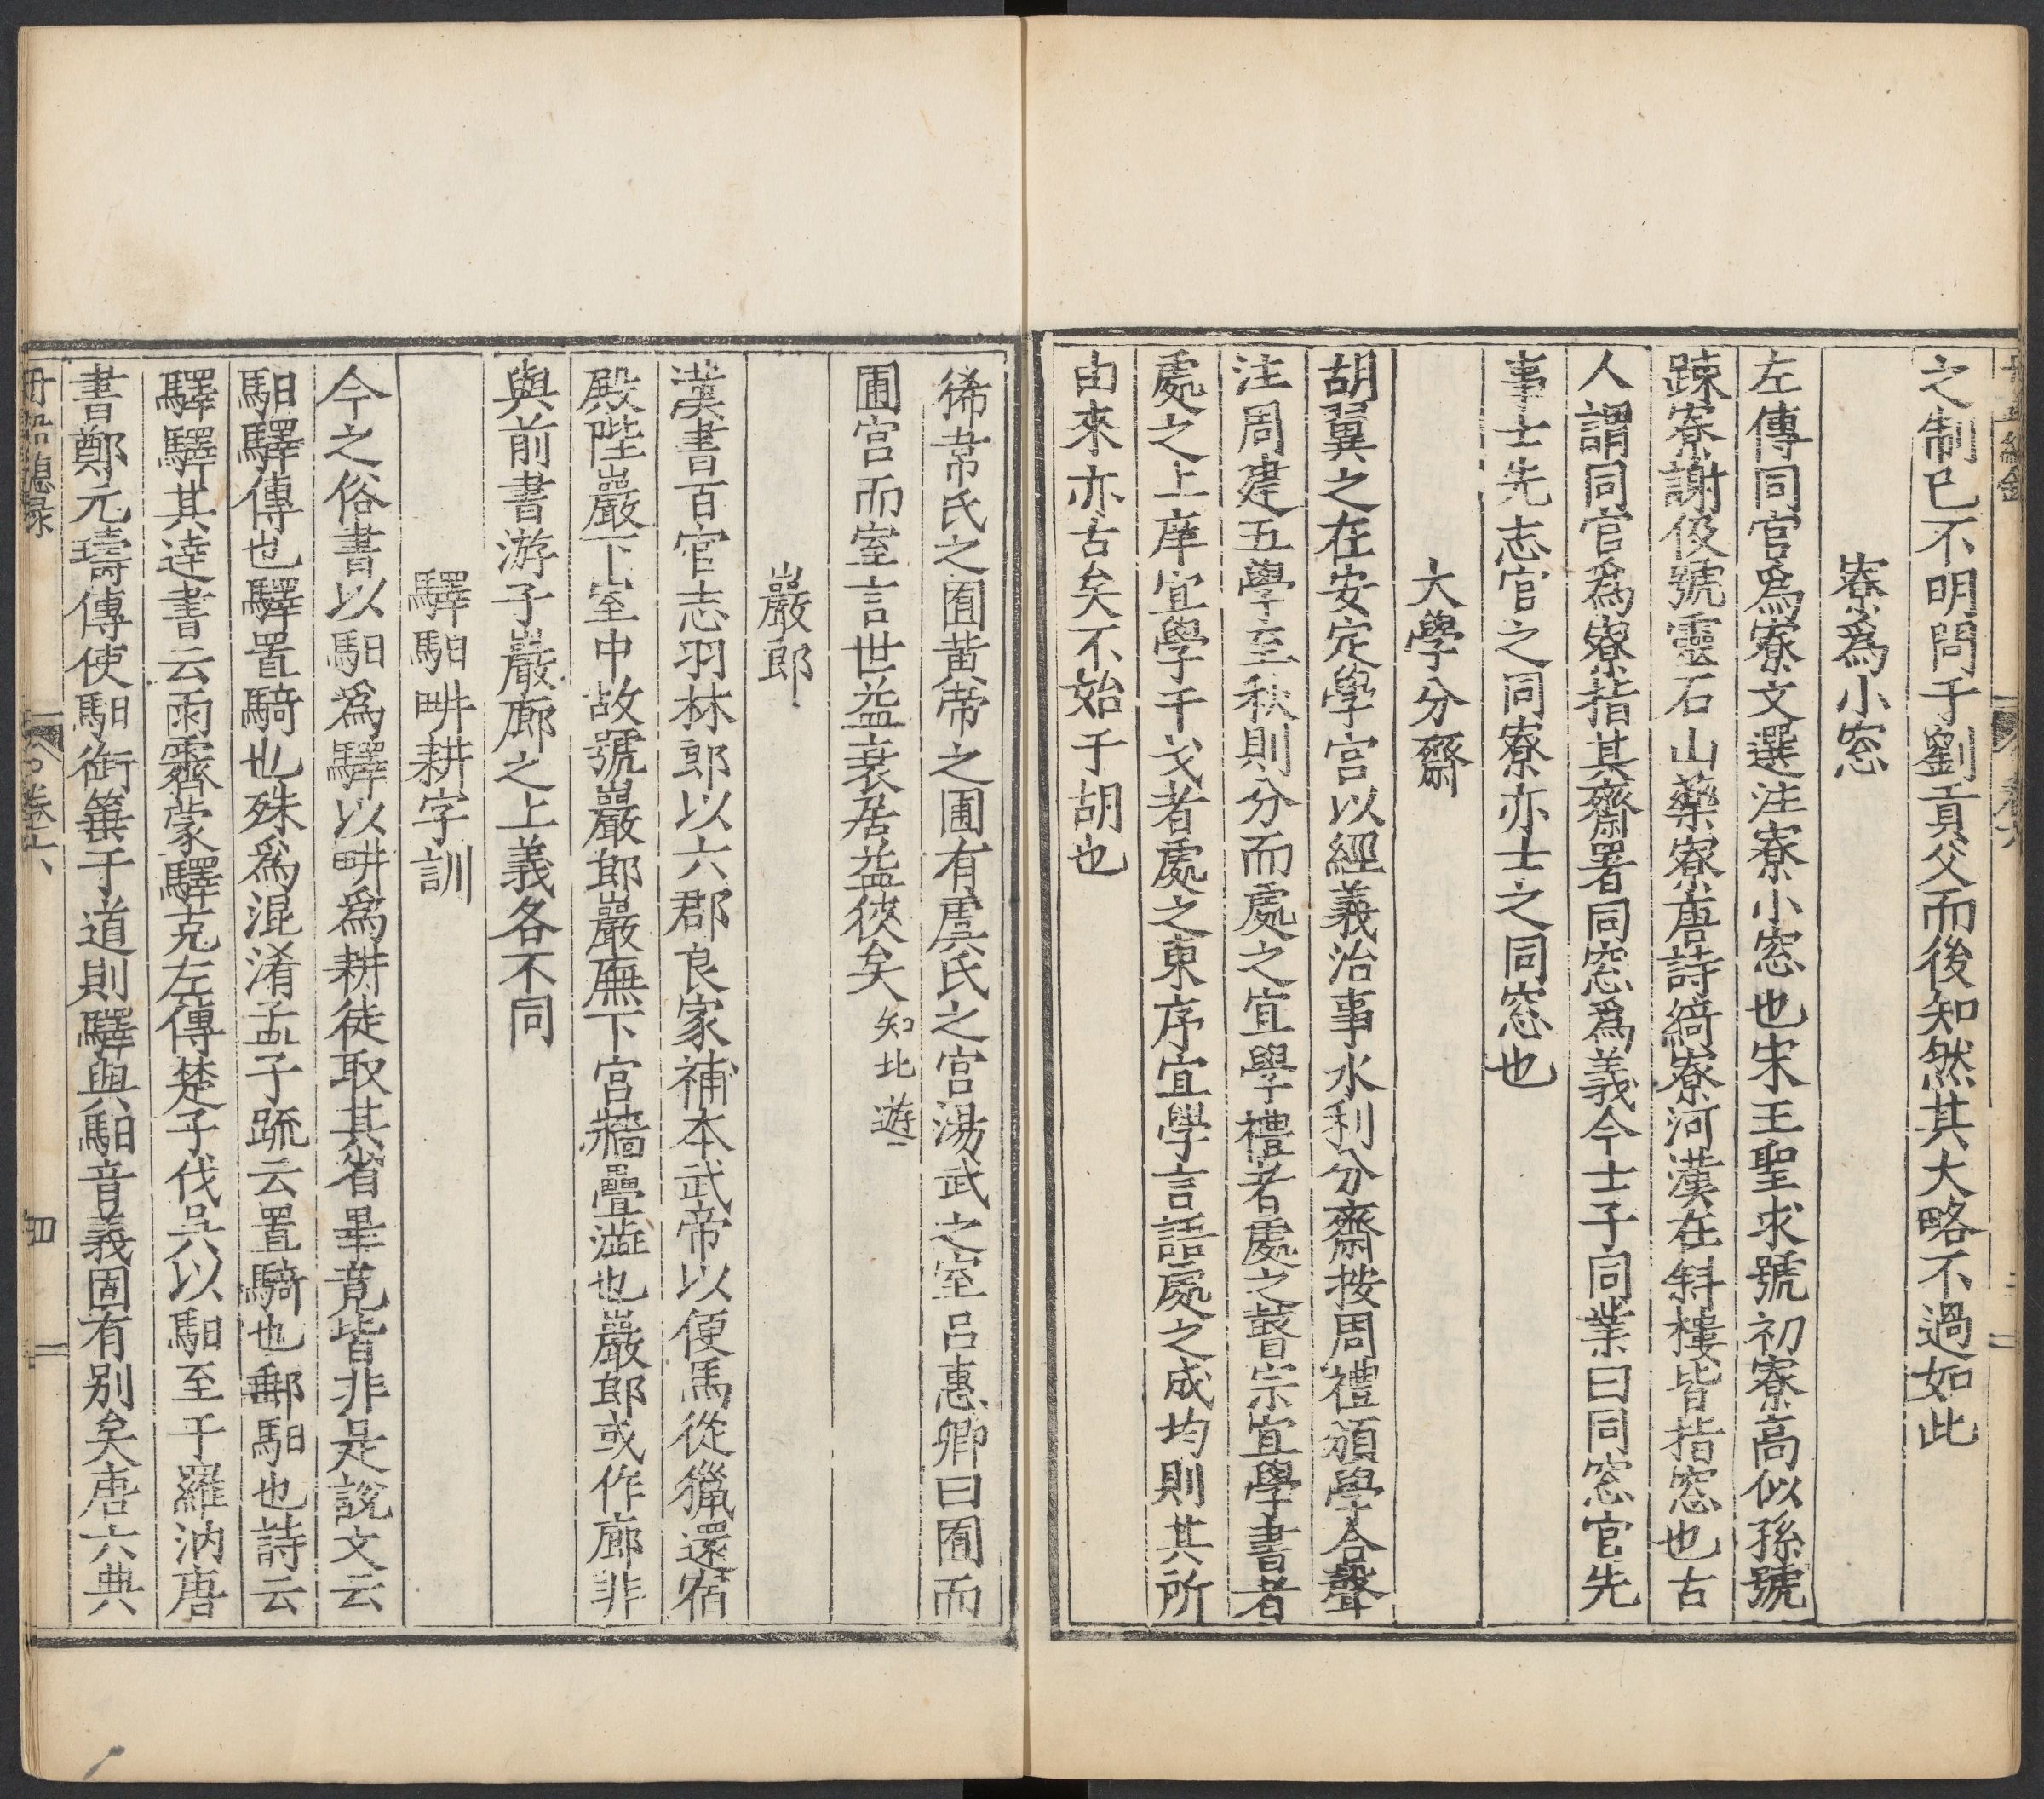 之制已不明問于劉貢父而後知然其大略不過如此
寮爲小窓
左傳同官爲寮文選注寮小窓也宋王聖求號初寮高似孫號
踈寮謝伋號靈石山藥寮唐詩綺寮河漢在斜樓皆指窓也古
人謂同官爲寮指其齋署同窓爲義今士子同業曰同窓官先
事士先志官之同寮亦士之同窓也
大學分齋
胡翼之在安定學宫以經義治事水利分齋按周禮頒學合聲
注周建五學至秋則分而處之宜學禮者處之瞽宗宜學書者
處之上庠宜學干戈者處之東序宜學言語處之成均則其所
由來亦古矣不始于胡也
狶韋氏之囿黃帝之圃有虞氏之宫湯武之室呂惠卿曰囿而
圃宫而室言世益衰居益狹矣知北遊
巖郎
漢書百官志羽林郎以六郡良家補本武帝以便馬從獵還宿
殿陛巖下室中故號巖郎巖廡下宫牆疊澁也巖郎或作廊非
與前書游子巖廊之上義各不同
驛馹畊耕字訓
今之俗書以馹爲驛以畊爲耕徒取其省畢竟皆非是說文云
馹驛傳也驛置騎也殊爲混淆孟子疏云置騎也郵馹也詩云
驛驛其逹書云雨霽蒙驛克左傳楚子伐吳以馹至于羅汭唐
書鄭元璹傳使馹銜箠于道則驛與馹音義固有别矣唐六典
丹鉛總録
卷十六
四